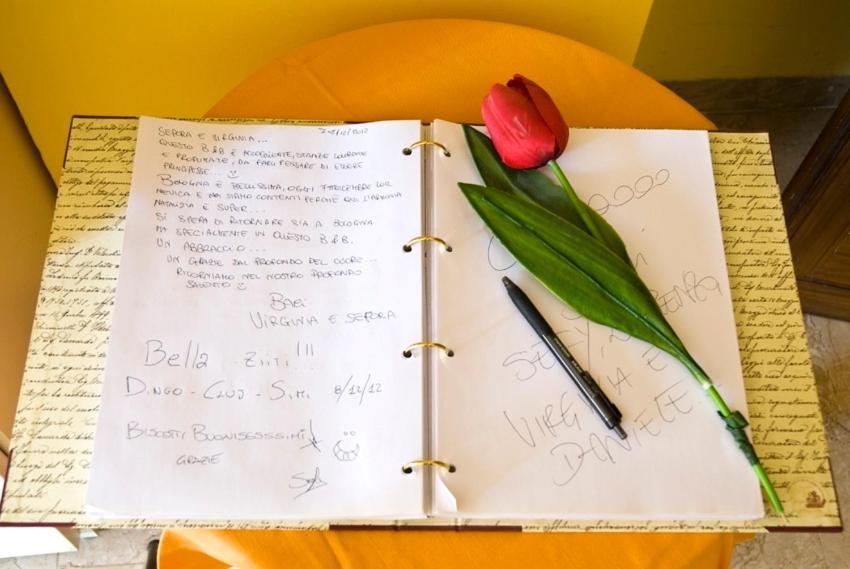 7-8/12/2012
SEPORA E VIRGINIA...
QUESTO B&B È ACCOGLIENTE, STANZE COLORATE
E PROFUMATE, DA FARCI PENSARE DI ESSERE
PRINCIPESSE...
BOLOGNA È BELLISSIMA, OGGI 7 DICEMBRE 2012
NEVICA E NOI SIAMO CONTENTI PERCHÈ QUI L'ARMONIA
NATALIZIA È SUPER...
SI SPERA DI RITORNARE SIA A BOLOGNA
MA SPECIALMENTE IN QUESTO B&B.
UN ABBRACCIO...
UN GRAZIE DAL PROFONDO DEL CUORE...
RITORNIAMO NEL NOSTRO PROFONDO
SALENTO
BACI
VIRGINIA E SEPORA
Bella ZITI!!!
DINGO - CLUJ - SIM. 8/12/12
BISCOTTI BUONISSSSSIMI!
GRAZIE
VIRGINIA E
DANIELE